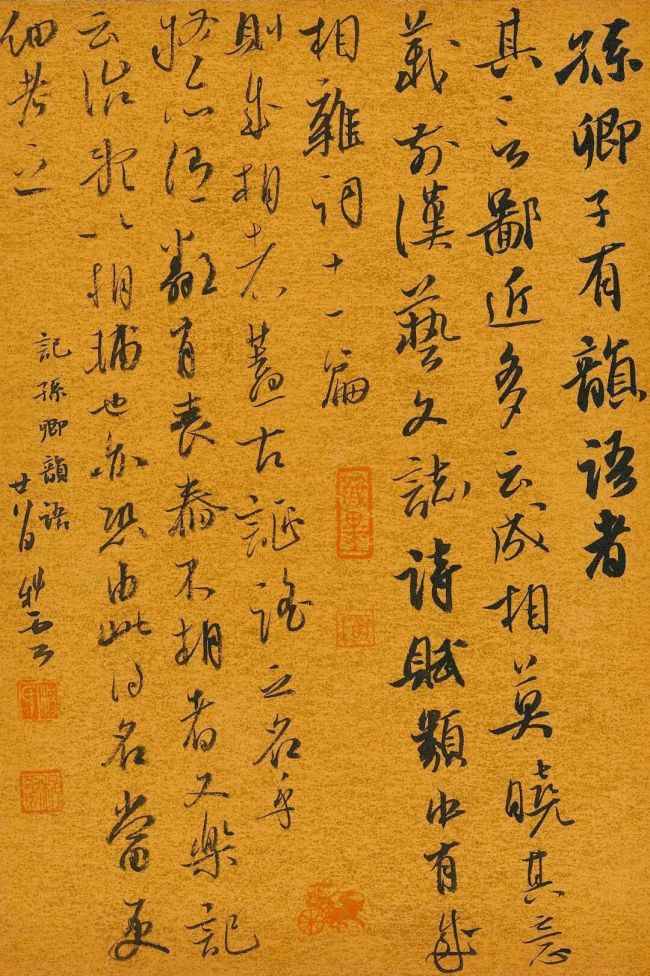 孫卿子有韻語者
其言鄙近多云成相莫曉其意
義前漢藝文誌詩賦類中有成
相雜詞十一篇
則成相者蓋古謳謠之名乎
謂鄰有喪舂不相者又樂記
云治亂以相輔也亦恐由此得名當更
細考之
記孫卿韻語